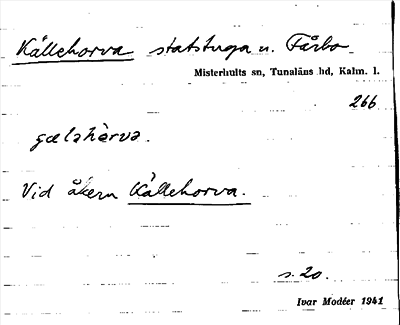 Källehorva statstuga u. Fårbo
Misterhults sn, Tunaläns hd, Kalm. l.
266
gælahèrva.
Vid åkern Källehorva.
s. 20.
Ivar Modéer 1941